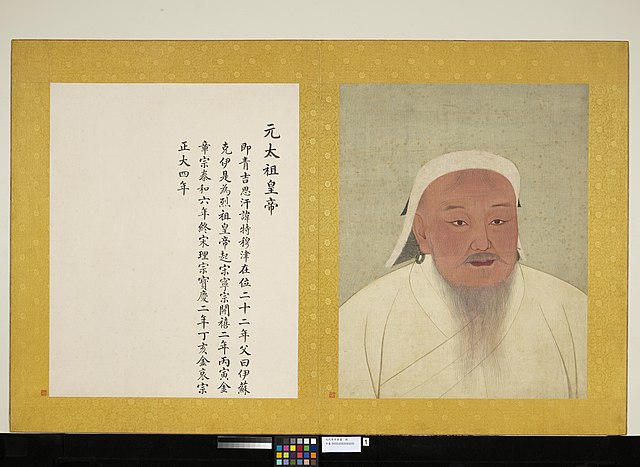 元太祖皇帝
即青吉思汗諱特穆津在位二十二年父曰伊蘇
克伊是為烈祖皇帝起宋寧宗開禧二年丙寅金
章宗泰和六年終宋理宗寶慶二年丁亥金哀宗
正大四年
1